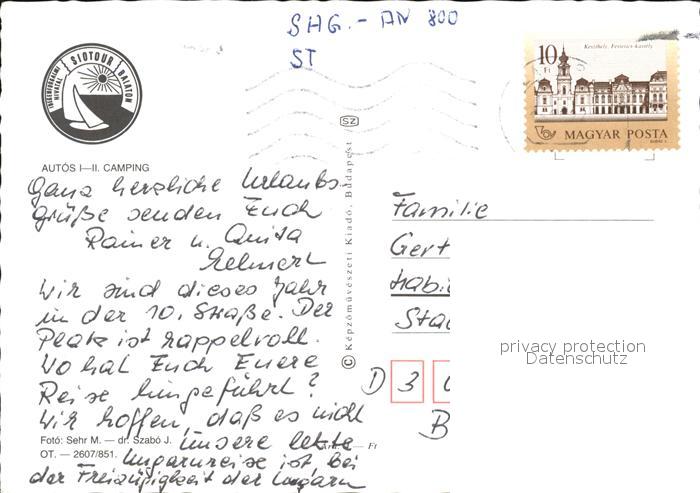 SHG.- AN 800
ST
SIOTOUR BALATON
IDEGENFORGALMI HIVATAL
10 Ft
Keszthely, Festetics-kastély
MAGYAR POSTA
AUTÓS I—II. CAMPING
Ganz herzliche Urlaubs-
grüße senden Euch
Rainer u. Anita
Wir sind dieses Jahr
in der 10. Straße. Der
Platz ist rappelvoll.
Wo hat Euch Euere
Reise hingeführt?
Wir hoffen, daß es nicht
unsere letzte
Ungarnreise ist, bei
der Freizügigkeit der Ungarn
Fotó: Sehr M. — dr. Szabó J.
OT. — 2607/851.
Ft
SZ
© Képzőművészeti Kiadó, Budapest
Familie
Gert
Habi
Sta
D 3
B
privacy protection
Datenschutz